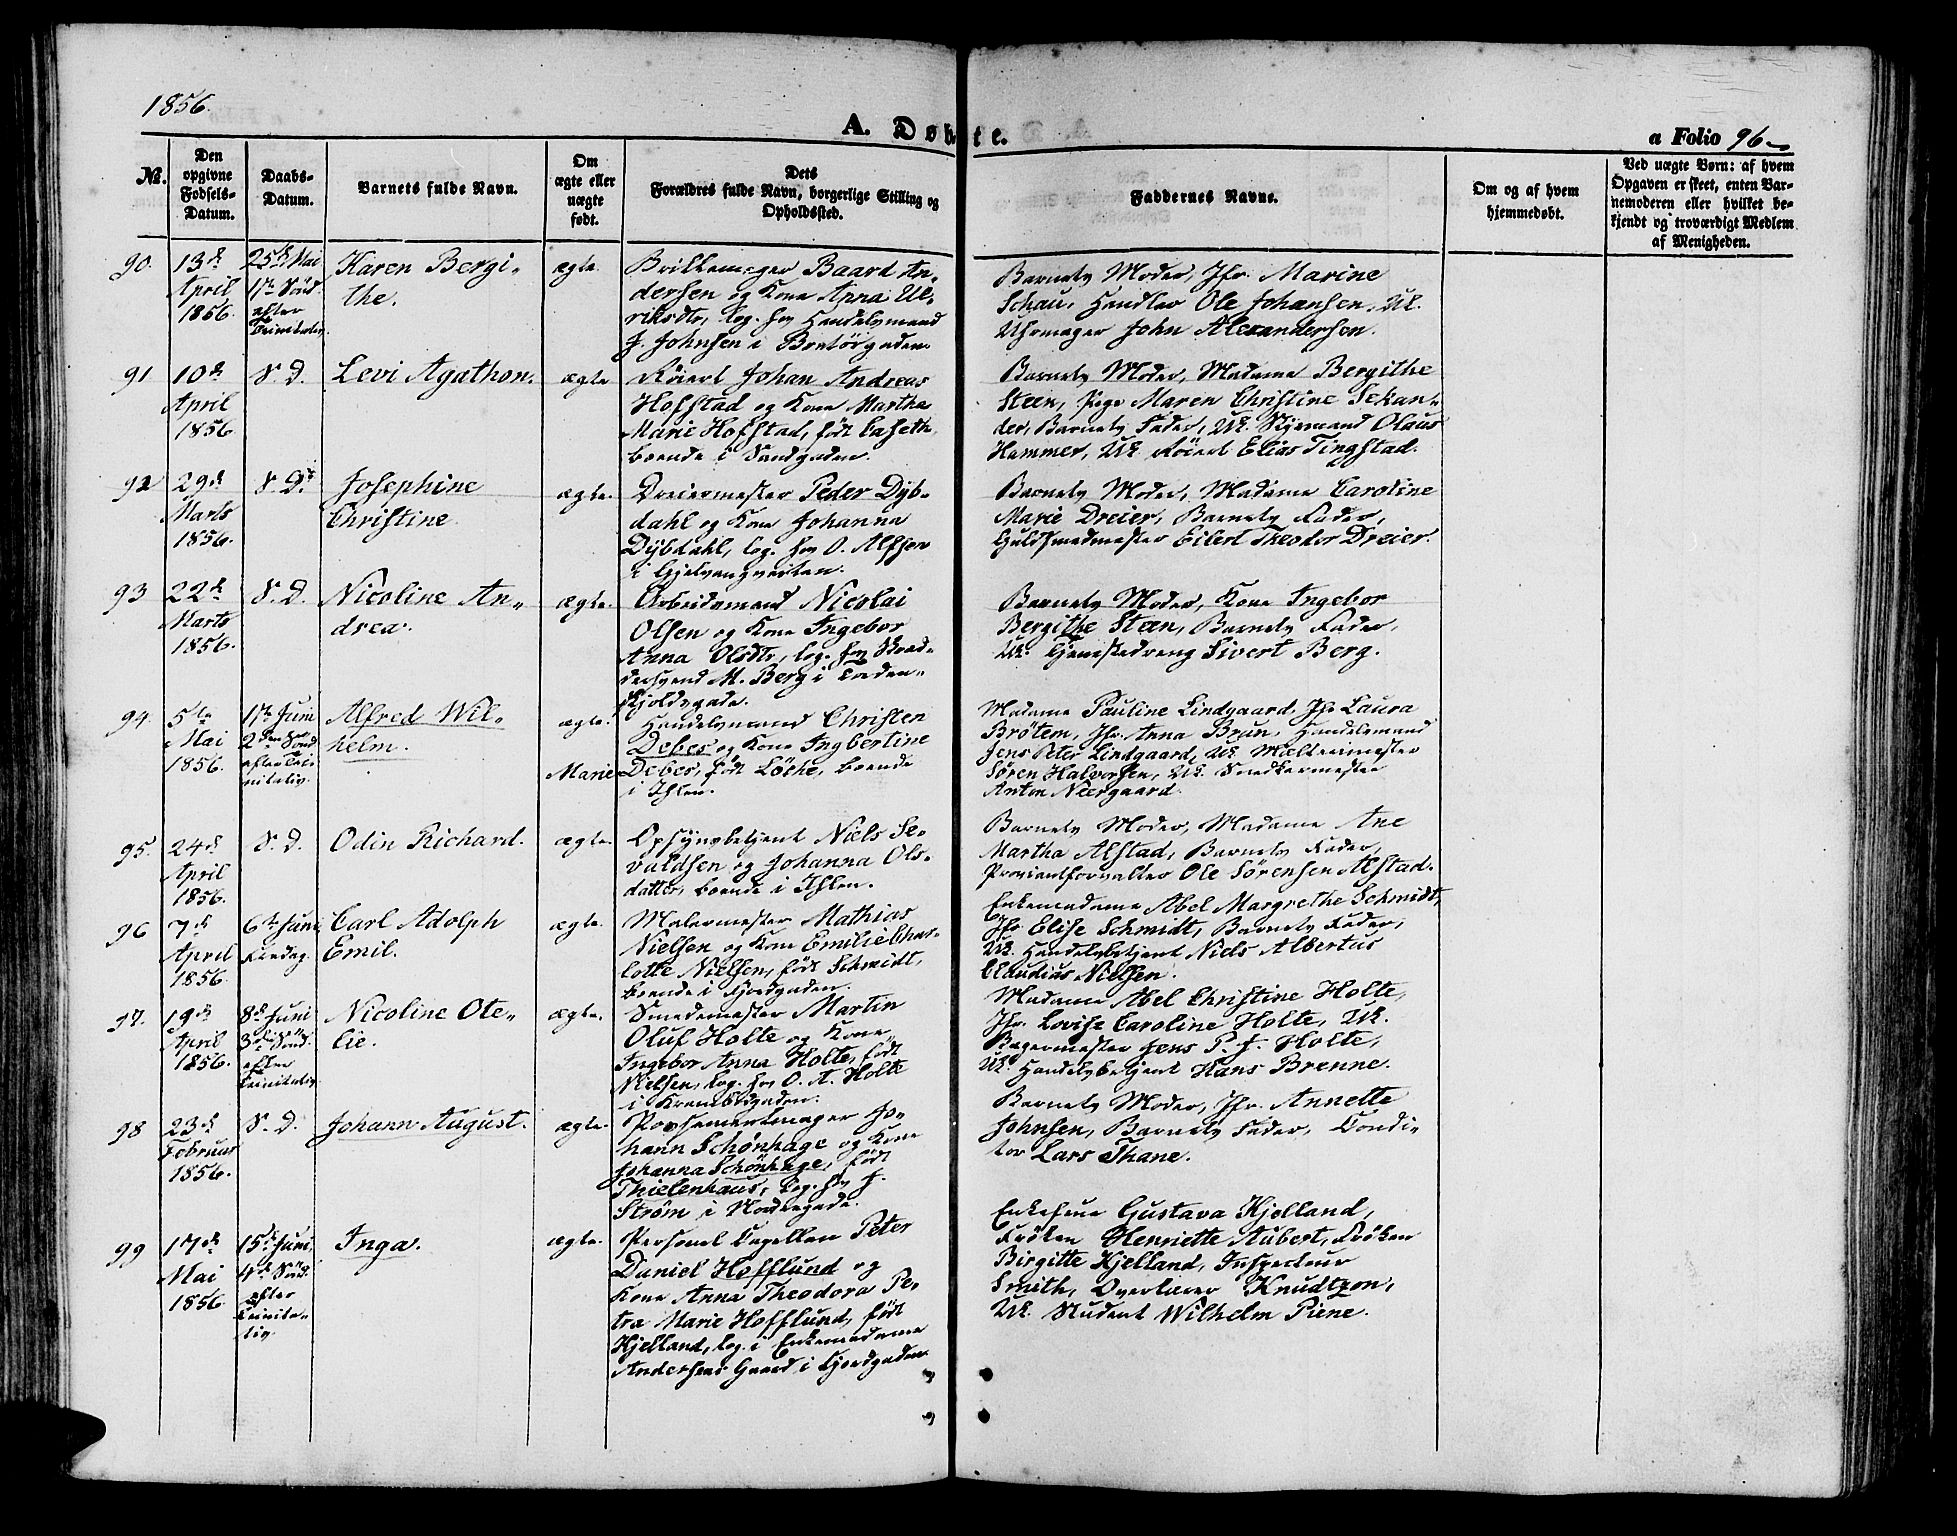 1856.
A. Døbte.
a Folio 96
№.
Den
opgivne
Fødsels-
Datum.
Daabs-
Datum.
Barnets fulde Navn.
Om
ægte eller
uægte
født.
Dets
Forældres fulde Navn, borgerlige Stilling og
Opholdssted.
Faddernes Navne.
Om og af hvem
hjemmedøbt.
Ved uægte Børn: af hvem
Opgaven er skeet, enten Bar-
nemoderen eller hvilket be-
kjendt og troværdigt Medlem
af Menigheden.
90.
13de
April
1856.
25de Mai
1ste Sönd.
efter
Trinitatis.
Karen Bergi-
the.
ægte.
Baard An-
dersen og Kone Anna Ul-
riksdtr, log. hos Handelsmand
J. Johnsen i Bratörgaden.
Barnets Moder, Jfr. Marine
Schau, Handler Ole Johansen, Uk.
Uhrmager John Alexandersen.
91
10de
April
1856
S. D.
Levi Agathon.
ægte
Röiert Johan Andreas
Hofstad og Kone Martha
Marie Hofstad, födt Caseth,
boende i Sandgaden.
Barnets Moder, Madame Bergithe
Steen, Pige Maren Christine Sekan-
der, Barnets Fader, Uk. Styrmand Olaus
Hammer, Uk. Röiert Elias Tingstad.
92
29de
Marts
1856.
S. D.
Josephine
Christine.
ægte.
Dreiermester Peder Dyb-
dahl og Kone Johanna
Dybdahl, log. hos O. Alfsen
i Gjelvangveiten.
Barnets Moder, Madame Caroline
Marie Dreier, Barnets Fader,
Guldsmedmester Eilert Theodor Dreier.
93
22de
Marts
1856.
S. D.
Nicoline An-
drea.
ægte.
Arbeidsmand Nicolai
Olsen og Kone Ingebor
Anna Olsdtr, log. hos Skræd-
dersvend M. Berg i Torden-
skjoldsgade.
Barnets Moder, Kone Ingebor
Bergithe Steen, Barnets Fader,
Uk. Tjenestedreng Sivert Berg.
94.
5te
Mai
1856.
1ste Juni
2den Sönd
efter Tri-
nitatis.
Alfred Wil-
helm.
ægte.
Handelsmand Christen
Debes og Kone Ingbertine
Marie Debes, födt Löche, boende
i Ihlen.
Madame Pauline Lindgaard, Jfr Laura
Brötem, Jfr. Anna Brun, Handelsmand
Jens Peter Lindgaard, Uk. Mæltermester
Sören Halvorsen, Uk. Snedkermester
Anton Neergaard.
95.
24de
April
1856.
S. D.
Odin Richard.
ægte.
Opsynsbetjent Niels Se-
valdsen og Johanna Ols-
datter, boende i Ihlen.
Barnets Moder, Madame Ane
Martha Alstad, Barnets Fader,
Proviantforvalter Ole Sörensen Alstad.
96
7de
April
1856.
6te Juni
Fredag.
Carl Adolph
Emil.
ægte.
Malermester Mathias
Nielsen og Kone Emilie Char-
lotte Nielsen, födt Schmidt,
boende i Fjordgaden.
Enkemadame Abel Margrethe Schmidt,
Jfr. Elise Schmidt, Barnets Fader,
Uk. Handelsbetjent Niels Albertus
Claudius Nielsen.
97.
19de
April
1856.
8de Juni
3die Sönd.
efter
Trinitatis
Nicoline Ote-
lie.
ægte.
Smedemester Martin
Oluf Holte og Kone
Ingebor Anna Holte, födt
Nielsen, log. hos O. A. Holte
i Krambodgaden.
Madame Abel Christine Holte,
Jfr. Lovise Caroline Holte, Uk.
Bagermester Jens P. J. Holte,
Uk. Handelsbetjent Hans Brenne.
98
23de
Februar
1856.
S. D.
Johann August.
ægte.
Possementmager Jo-
hann Schönhage og Kone
Johanna Schönhage, födt
Thielenhaus, log. hos J.
Ström i Nordregade.
Barnets Moder, Jfr. Annette
Johnsen, Barnets Fader, Condi-
tor Lars Thane.
99
17de
Mai
1856.
15de Juni,
4de Sönd.
efter
Trinita-
tis.
Inga.
ægte.
Personel Capellan Peter
Daniel Hofflund og
Kone Anna Theodora Pe-
tra Marie Hofflund, födt
Hjelland, log. i Enkemadame
Andersens Gaard i Fjordgaden
Enkefrue Gustava Kjelland,
Fröken Henriette Aubert, Fröken
Birgitte Kjelland, Inspecteur
Smith, Overlærer Knudtzon,
Uk. Student Wilhelm Piene.